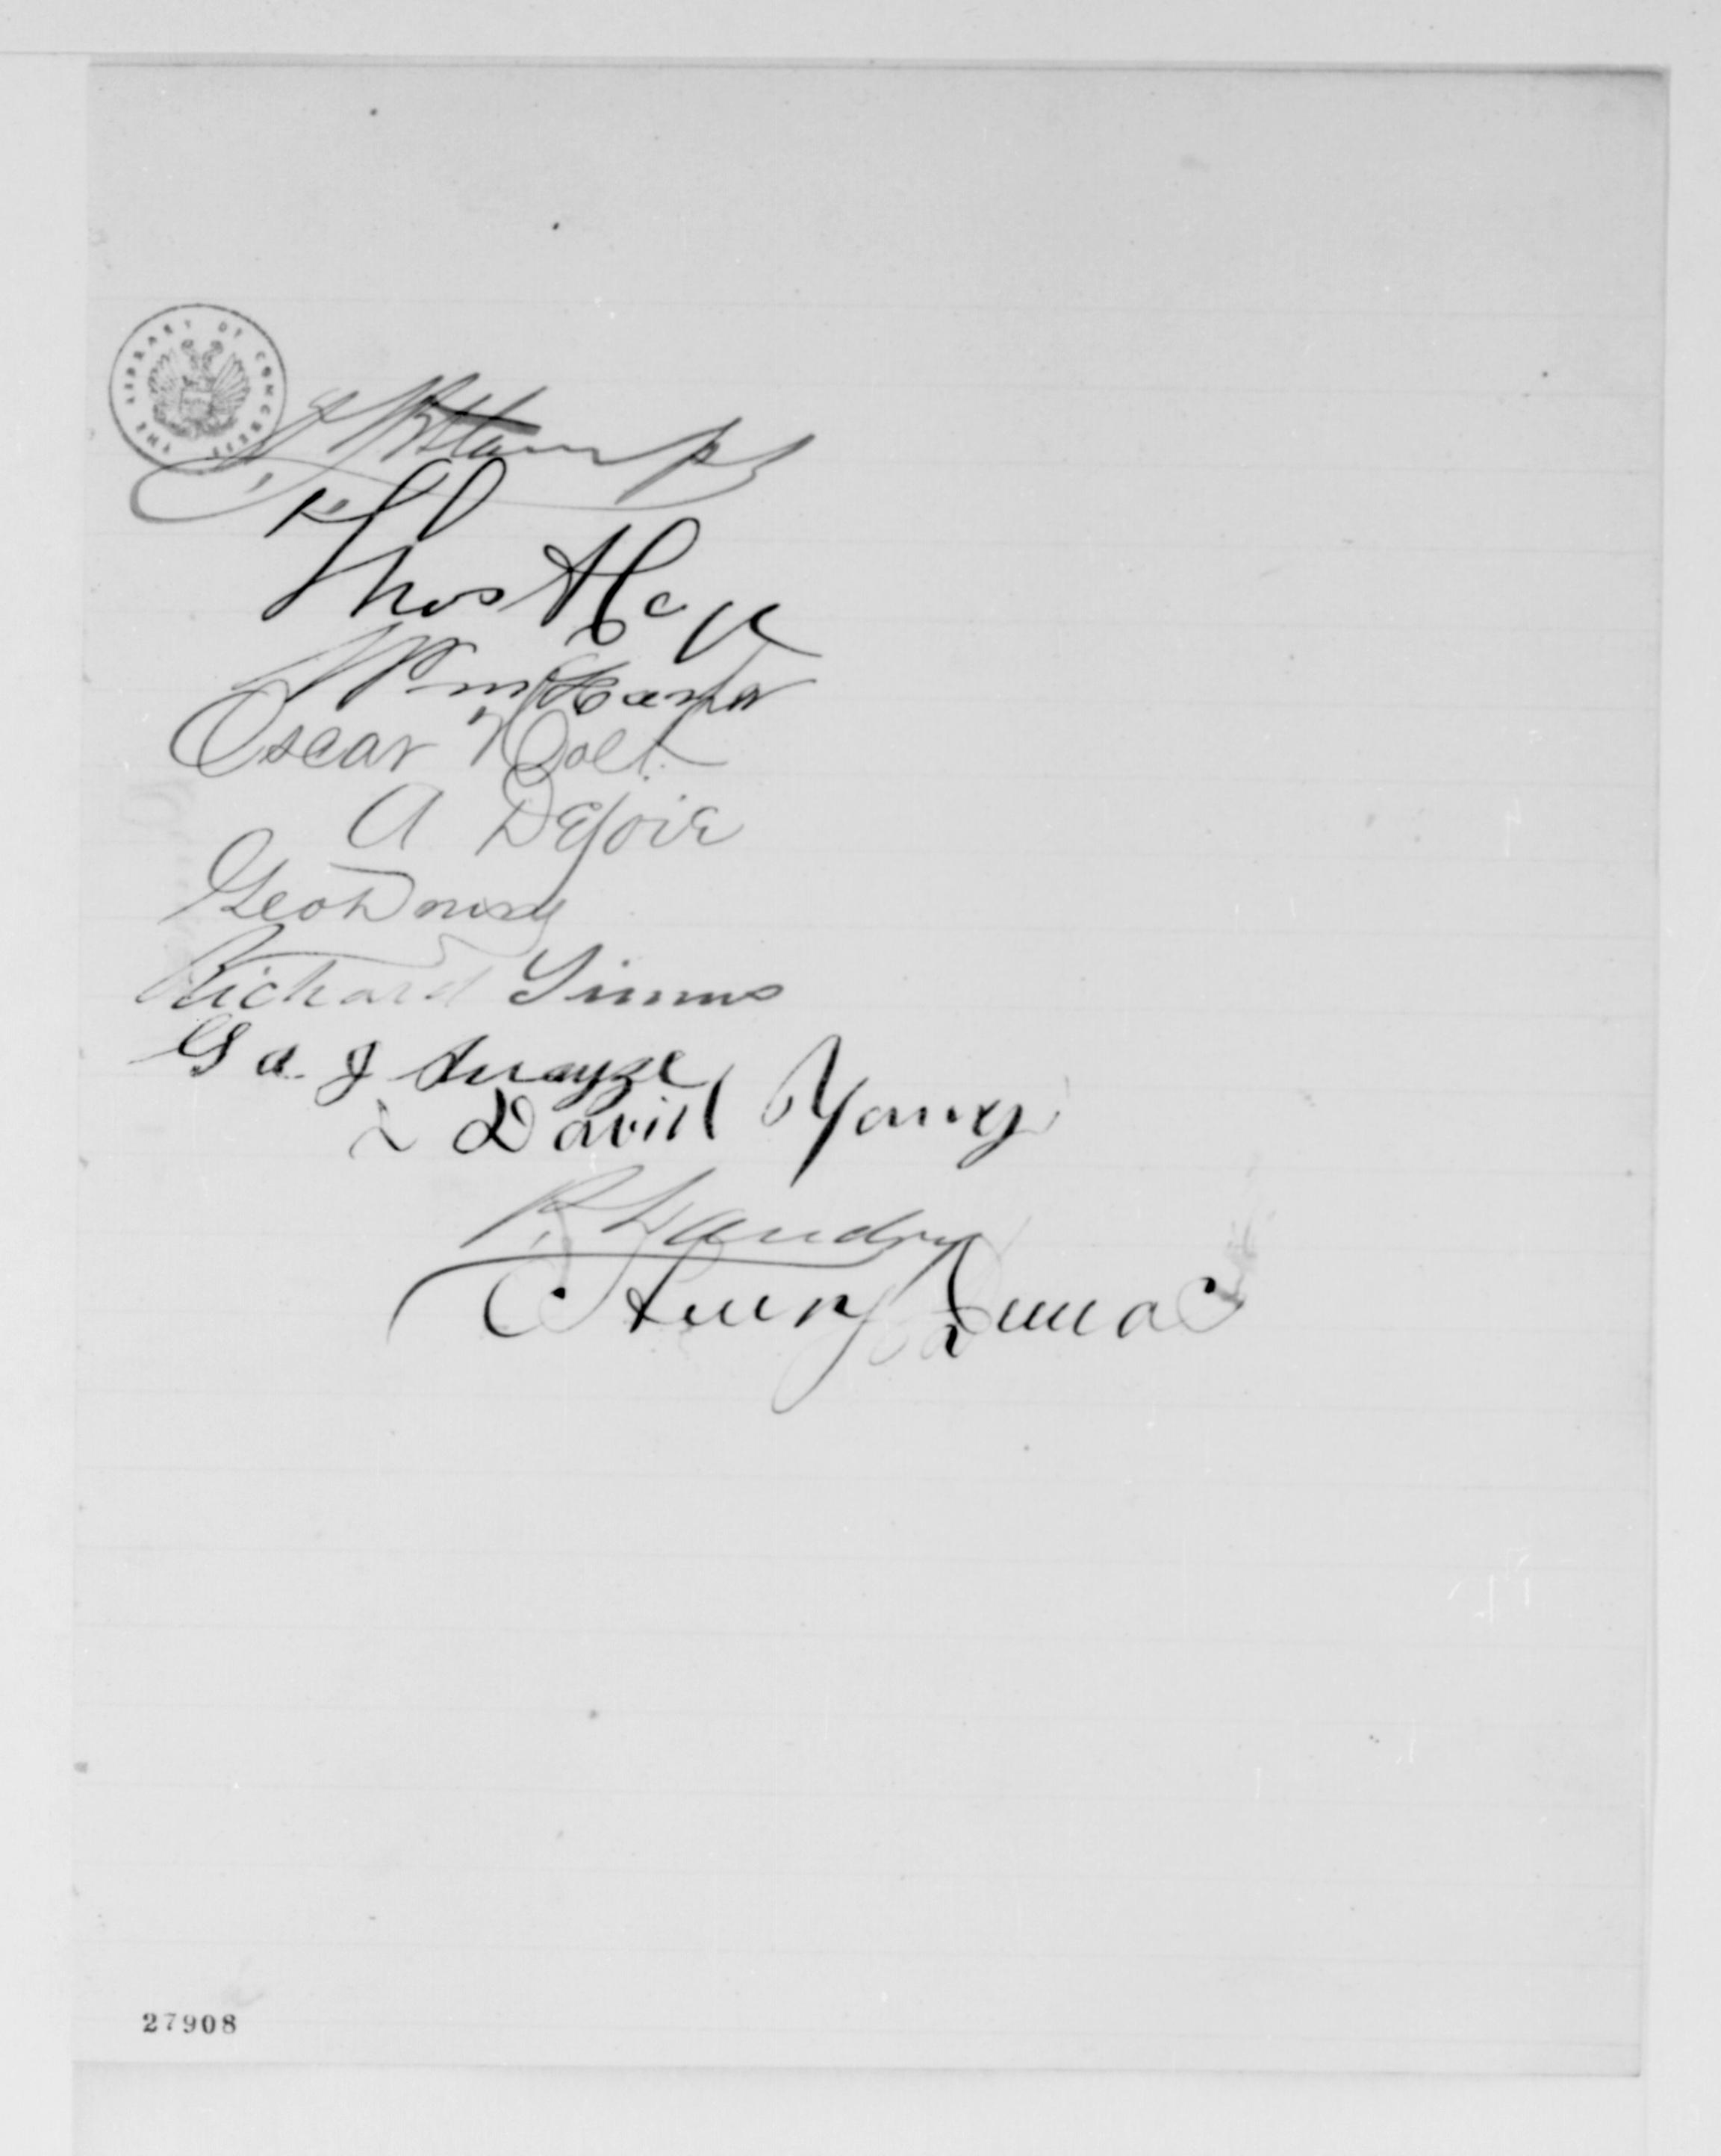 THE LIBRARY OF CONGRESS
T B Stamps
Thos A Cage
Wm Harper
Oscar Holt
A Dejoie
Geo Drury
Richard Simms
Ga. J Swayze
David Young
P. Landry
Henry Demas
27908